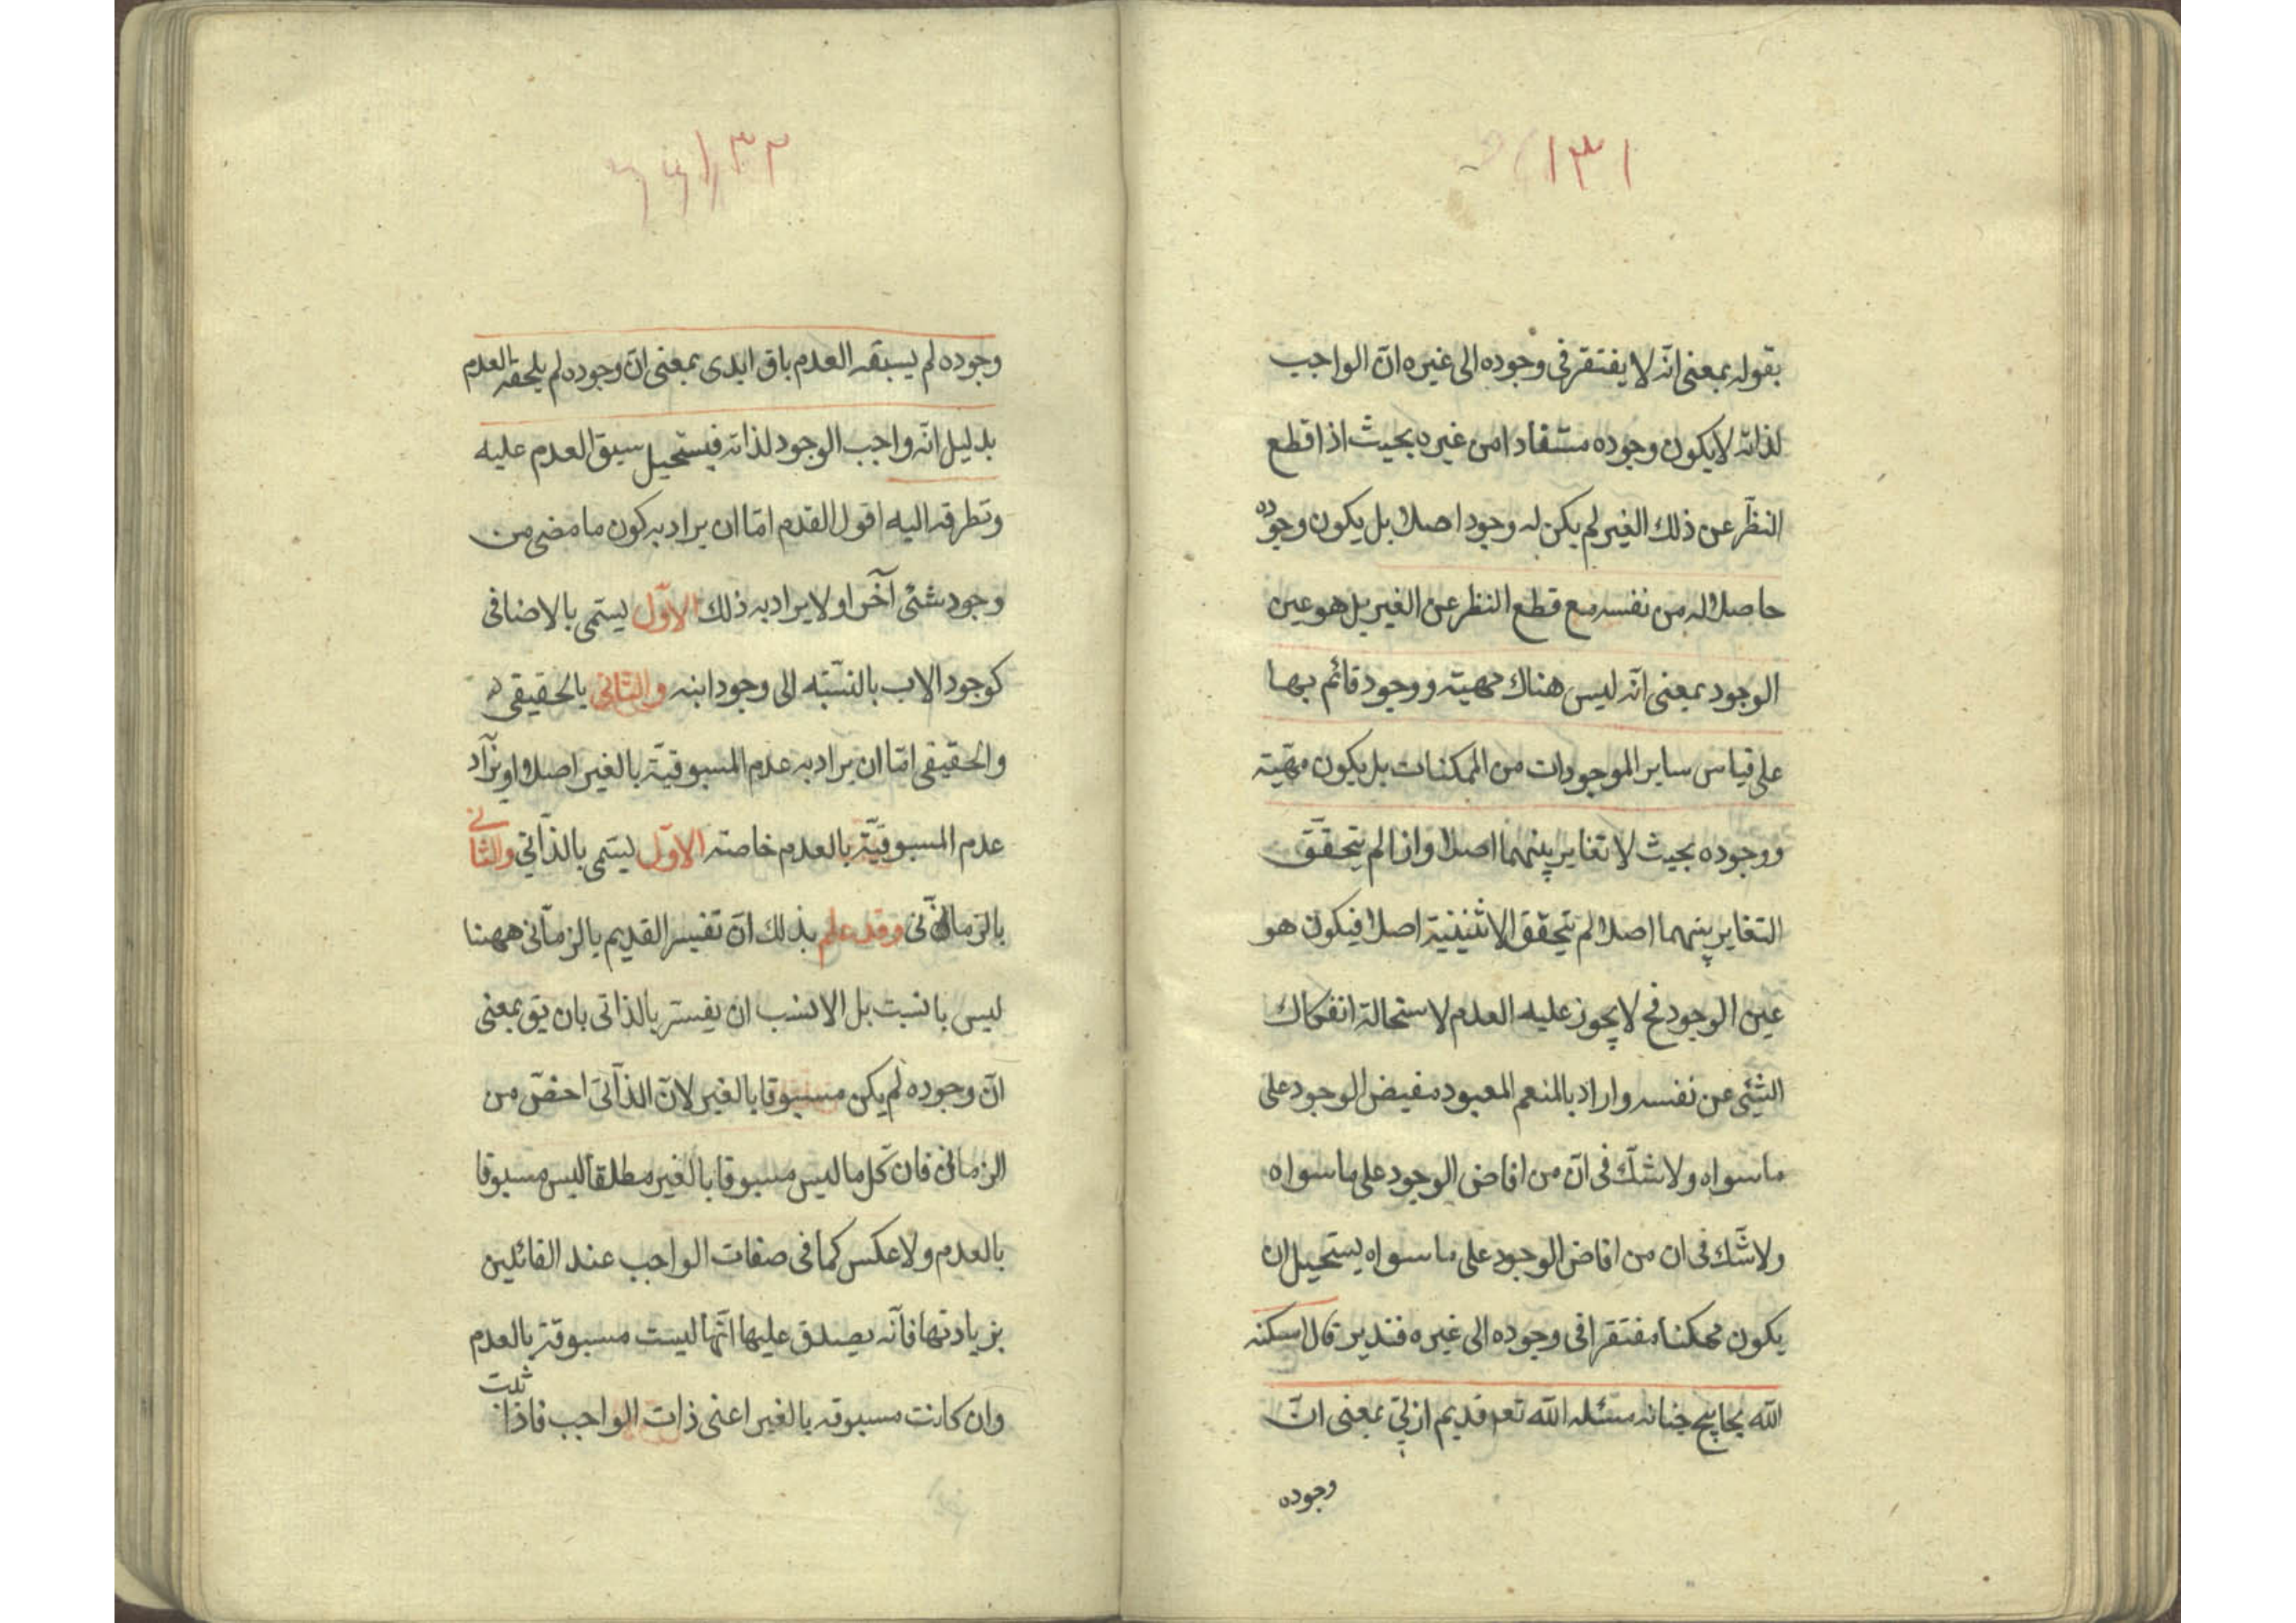 ١٣١
بقوله بمعنى انّه لا يفتقر فى وجوده الى غيره انّ الواجب
لذاته لا يكون وجوده مستفادا من غيره بحيث اذا قطع
النظر عن ذلك الغير لم يكن له وجود اصلا بل يكون وجوده
حاصلا له من نفسه مع قطع النظر عن الغير بل هو عين
الوجود بمعنى انّه ليس هناك مهية ووجود قائم بها
على قياس ساير الموجودات من الممكنات بل يكون مهيّته
ووجوده بحيث لا تغاير بينهما اصلا واذا لم يتحقّق
التغاير بينهما اصلا لم يتحقق الاثنينية اصلا فيكون هو
عين الوجود فح لا يجوز عليه العدم لاستحالة انفكاك
الشئ عن نفسه واراد بالمنعم المعبود مفيض الوجود على
ماسواه ولا شكّ فى انّ من افاض الوجود على ماسواه
ولا شّك فى ان من افاض الوجود على ماسواه يستحيل ان
يكون ممكنا مفتقرا فى وجوده الى غيره فتدبر قال اسكنه
الله بحابيح جنانه مسئله الله تعه قديم ازلىّ بمعنى انّ
وجوده
١٣٢
وجوده لم يسبقه العدم باق ابدى بمعنى انّ وجوده لم يلحقه العدم
بدليل انّه واجب الوجود لذاته فيستحيل سبق العدم عليه
وتطرقه اليه اقول القدم امّا ان يراد به كون ما مضى من
وجود شئى آخر او لا يراد به ذلك الاوّل يسمّى بالاضافى
كوجود الاب بالنسّبه الى وجود ابنه والثانى بالحقيقى
والحقيقى امّا ان يراد به عدم المسبوقيّة بالغير اصلا او يراد
عدم المسبوقيّة بالعدم خاصته الاوّل يسمّى بالذّاتي والثانے
بالزمانى وقد علم بذلك انّ تفسير القديم بالزمانى ههنا
ليس بانسبت بل الانسب ان يفسّر بالذاتى بان يق بمعنى
انّ وجوده لم يكن مسبوقا بالغير لانّ الذّاتى اخصّ من
الزمانى فان كّل ما ليس مسبوقا بالغير مطلقا ليس مسبوقا
بالعدم ولا عكس كما فى صفات الواجب عند القائلين
بزيادتها فانّه يصدق عليها انّها ليست مسبوقة بالعدم
وان كانت مسبوقه بالغير اعنى ذات الواجب فاذا ثبت